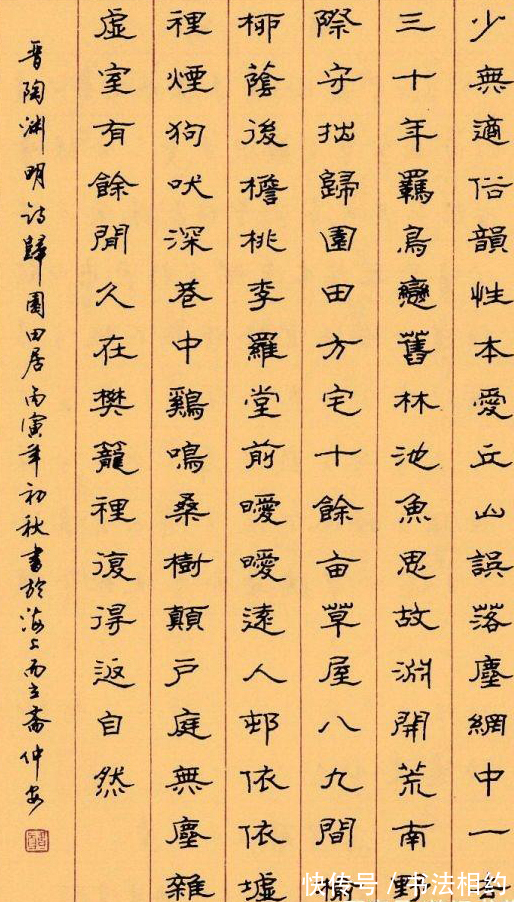 少無適俗韻性本愛丘山誤落塵網中一去
三十年羈鳥戀舊林池魚思故淵開荒南野
際守拙歸園田方宅十餘亩草屋八九間榆
栁蔭後檐桃李羅堂前曖曖遠人邨依依墟
裡煙狗吠深巷中鷄鳴桑樹顛戶庭無塵雜
虛室有餘閒久在樊籠裡復得返自然
晋陶渊明诗歸園田居丙寅年初秋書於海上而立斋仲安
快传号 / 书法相约